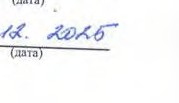 (дата)
12. 2025
(дата)